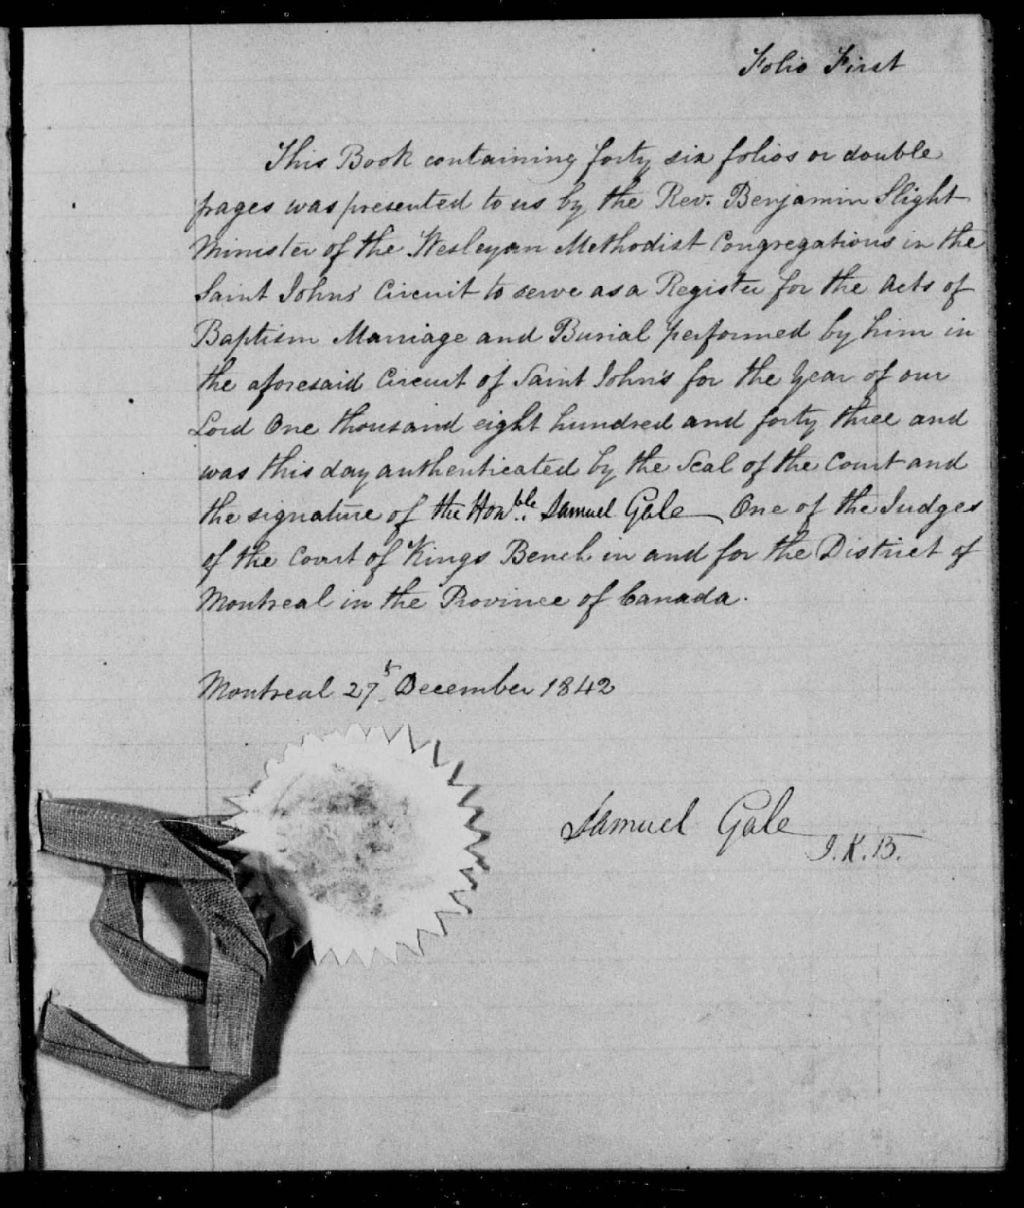 Folio First
This Book containing forty six folios or double
pages was presented to us by the Rev. Benjamin Slight
Minister of the Wesleyan Methodist Congregations in the
Saint Johns' Circuit to serve as a Register for the Acts of
Baptism Marriage and Burial performed by him in
the aforesaid Circuit of Saint John's for the Year of our
Lord One thousand eight hundred and forty three and
was this day authenticated by the Seal of the Court and
the signature of the Honble. Samuel Gale One of the Judges
of the Court of Kings Bench in and for the District of
Montreal in the Province of Canada.
Montreal 27t. December 1842
Samuel Gale
J.K.B.